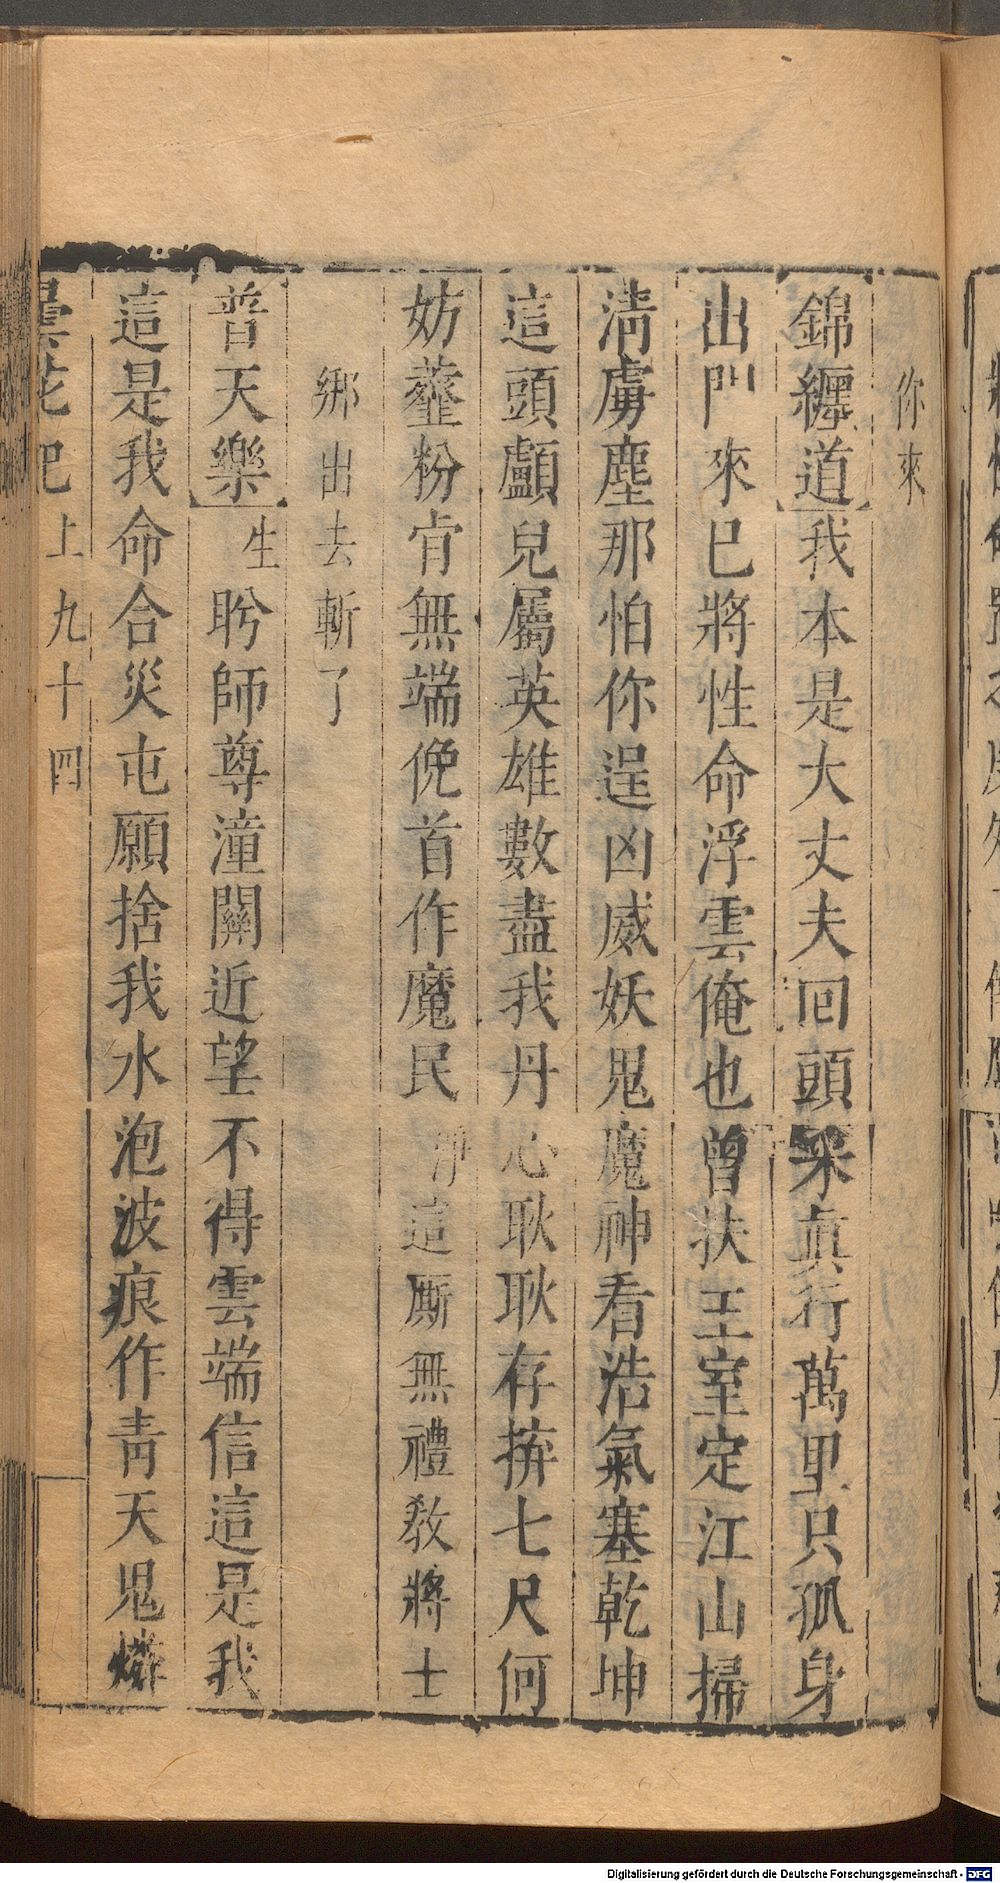 你來
錦纏道我本是大丈夫回頭采眞行萬里只孤身
出門來已將性命浮雲俺也曾扶王室定江山掃
清虜塵那怕你逞凶威妖鬼魔神看浩氣塞乾坤
這頭顱兒屬英雄數盡我丹心耿耿存擠七尺何
妨虀粉肯無端俛首作魔民淨這厮無禮教將士
綁出去斬了
普天樂生盻師尊潼關近望不得雲端信這是我
這是我命合災屯願捨我水泡波痕作青天鬼燐
曇花記上九十四
Digitalisierung gefördert durch die Deutsche Forschungsgemeinschaft - DFG